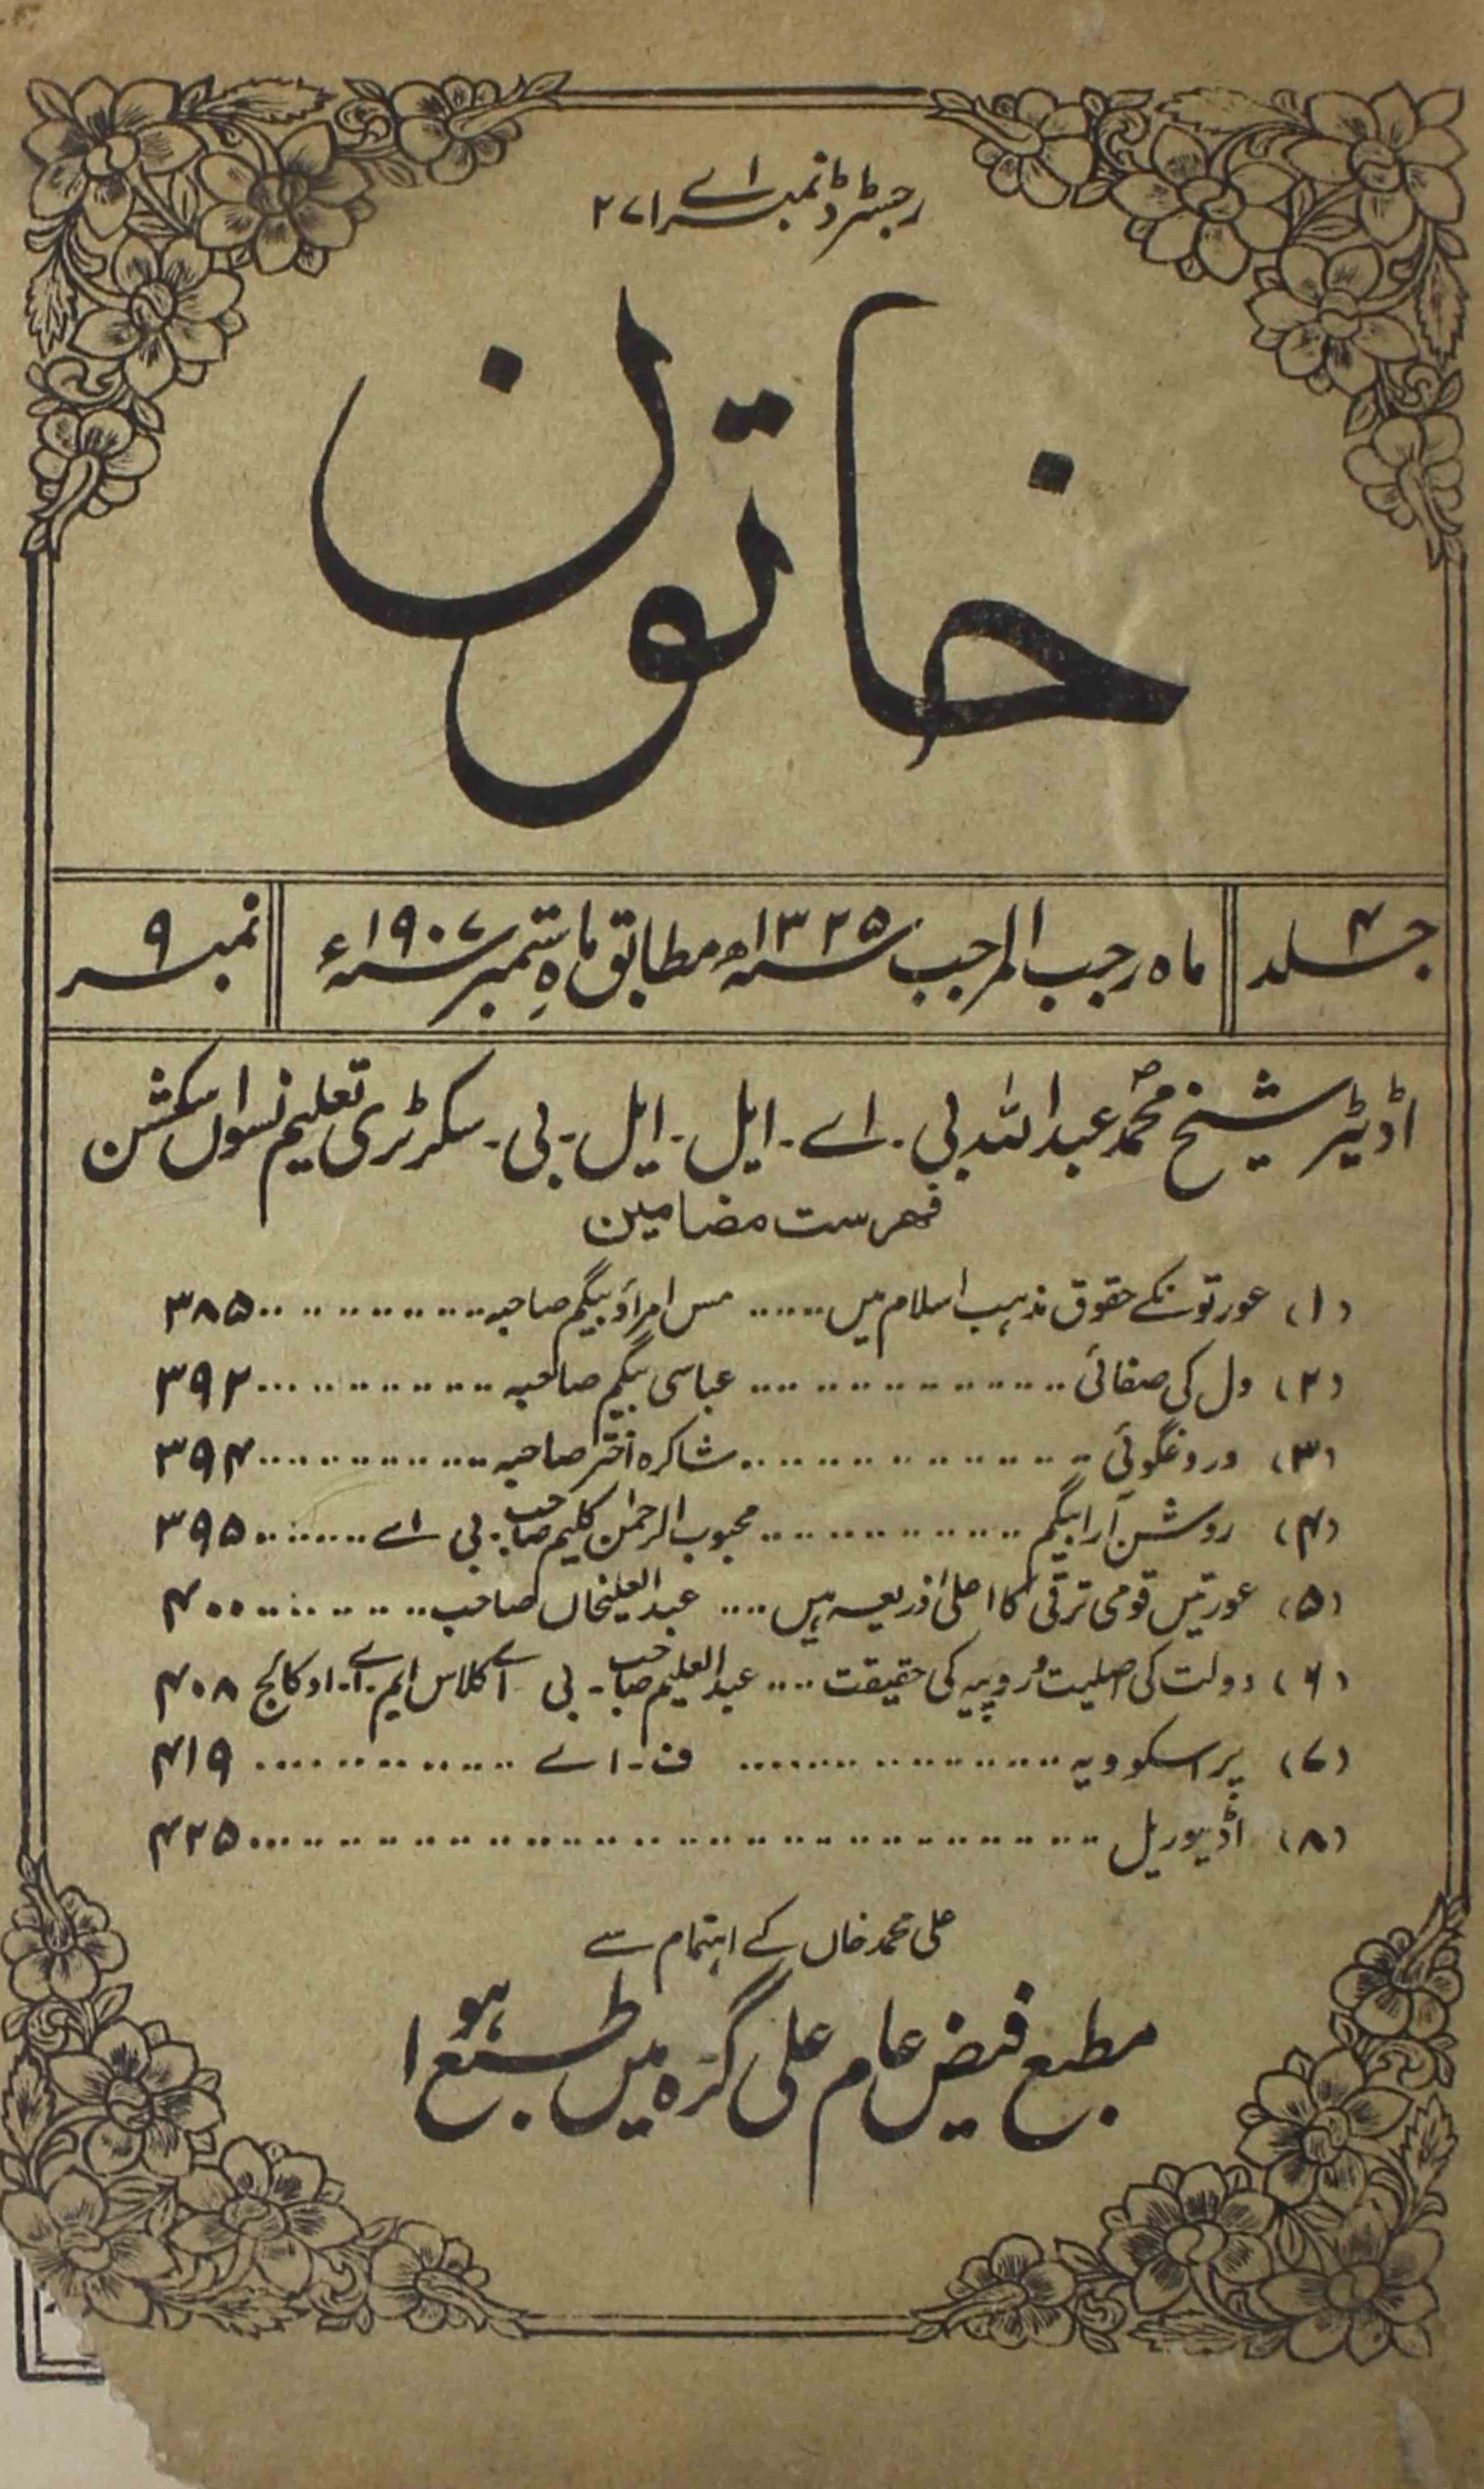 رجسٹرڈ نمبر اے ۲۷۱
خاتون
جلد ۴
ماہ رجب المرجب سنہ ۱۳۲۵ھ مطابق ماہِ ستمبر سنہ ۱۹۰۷ء
نمبر ۹
اڈیٹر شیخ محمدؐ عبداللہ بی - اے - ایل - ایل - بی - سکرٹری تعلیم نسواں سکشن
فہرست مضامین
(۱) عورتونکے حقوق مذہب اسلام میں ...... مس امراؤ بیگم صاحبہ ...... ۳۸۵
(۲) دل کی صفائی ...... عباسی بیگم صاحبہ ...... ۳۹۲
(۳) دروغگوئی ...... شاکرہ اختر صاحبہ ...... ۳۹۴
(۴) روشن آرا بیگم ...... محبوب الرحمٰن کلیم صاحب - بی اے ...... ۳۹۵
(۵) عورتیں قومی ترقی کا اصلی ذریعہ ہیں .... عبدالعلیخاں صاحب ...... ۴۰۰
(۶) دولت کی اصلیت و روپیہ کی حقیقت .... عبدالعلیم صاحب - بی اے کلاس ایم - اے - او کالج ۴۰۸
(۷) پراسکوویہ ...... ف - اے ...... ۴۱۹
(۸) اڈیٹوریل ...... ۴۲۵
علی محمد خاں کے اہتمام سے
مطبع فیض عام علی گڑہ میں طبع ہوا